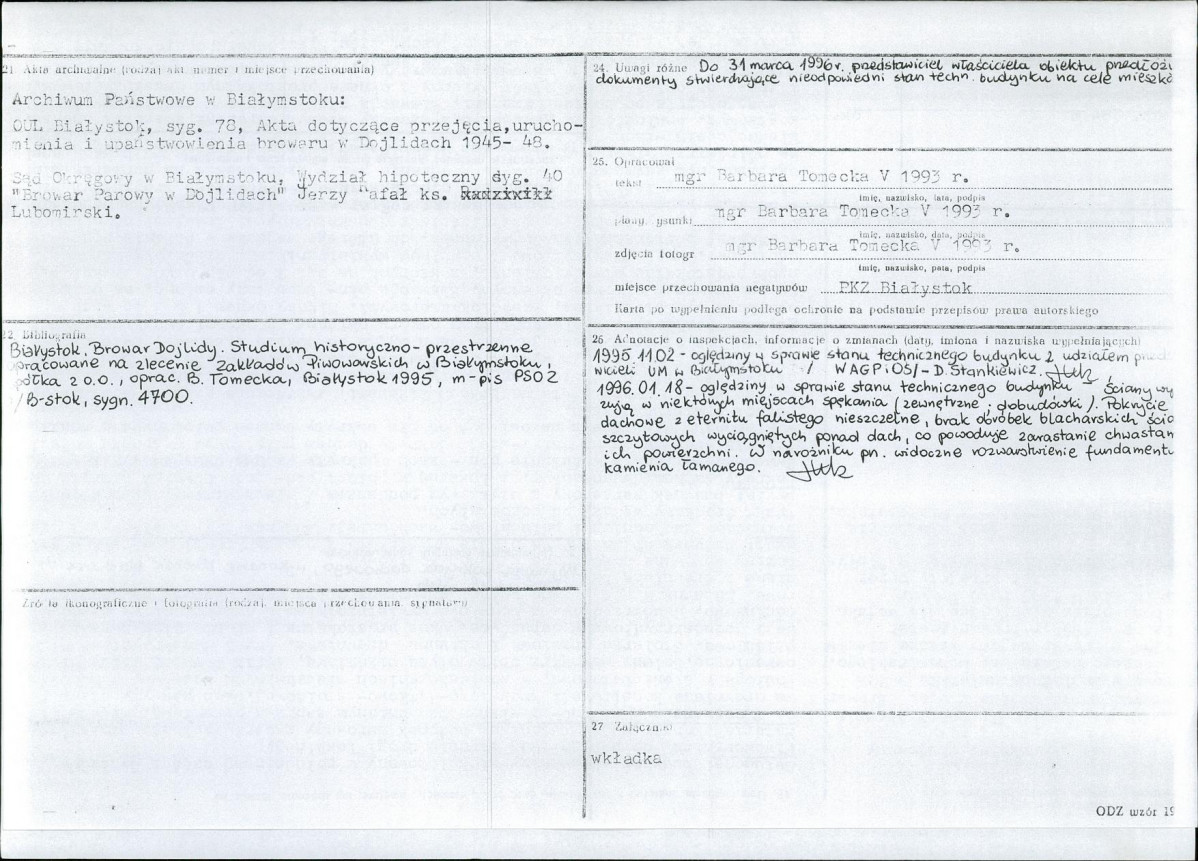 21. Akta archiwalne (rodzaj akt, numer i miejsce przechowania)
Archiwum Państwowe w Białymstoku:
OUL Białystok, syg. 78, Akta dotyczące przejęcia,urucho-
mienia i upaństwowienia browaru w Dojlidach 1945- 48.
Sąd Okręgowy w Białymstoku, Wydział hipoteczny syg. 40
"Browar Parowy w Dojlidach" Jerzy "afał ks.
Lubomirski.
22. Bibliografia
Białystok, Browar Dojlidy. Studium historyczno-przestrzenne
opracowane na zlecenie Zakładów Piwowarskich w Białymstoku,
półka z o.o., oprac. B. Tomecka, Białystok 1995, m-pis PSOZ
/B-stok, sygn. 4700.
Źródła ikonograficzne i fotografie (rodzaj, miejsca przechowania, sygnatury)
24. Uwagi różne Do 31 marca 1996r. przedstawiciel właściciela obiektu przedłoży
dokumenty stwierdzające nieodpowiedni stan techn. budynku na cele mieszka
25. Opracował
tekst mgr Barbara Tomecka V 1993 r.
imię, nazwisko, data, podpis
plany, rysunki mgr Barbara Tomecka V 1993 r.
imię, nazwisko, data, podpis
zdjęcia fotogr mgr Barbara Tomecka V 1993 r.
imię, nazwisko, data, podpis
miejsce przechowania negatywów PKZ Białystok
Karta po wypełnieniu podlega ochronie na podstawie przepisów prawa autorskiego
26. Adnotacje o inspekcjach, informacje o zmianach (daty, imiona i nazwiska wypełniających)
1995.11.02 - oględziny w sprawie stanu technicznego budynku z udziałem przed
wicieli UM w Białymstoku / WAGPiOŚ/ - D. Stankiewicz.
1996.01.18 - oględziny w sprawie stanu technicznego budynku. Ściany wy
zują w niektórych miejscach spękania (zewnętrzne, dobudówki). Pokrycie
dachowe z eternitu falistego nieszczelne, brak obróbek blacharskich ścia
szczytowych wyciągniętych ponad dach, co powoduje zarastanie chwastam
ich powierzchni. W narożniku pn. widoczne rozwarstwienie fundamentu
kamienia łamanego.
27. Załączniki
wkładka
ODZ wzór 19